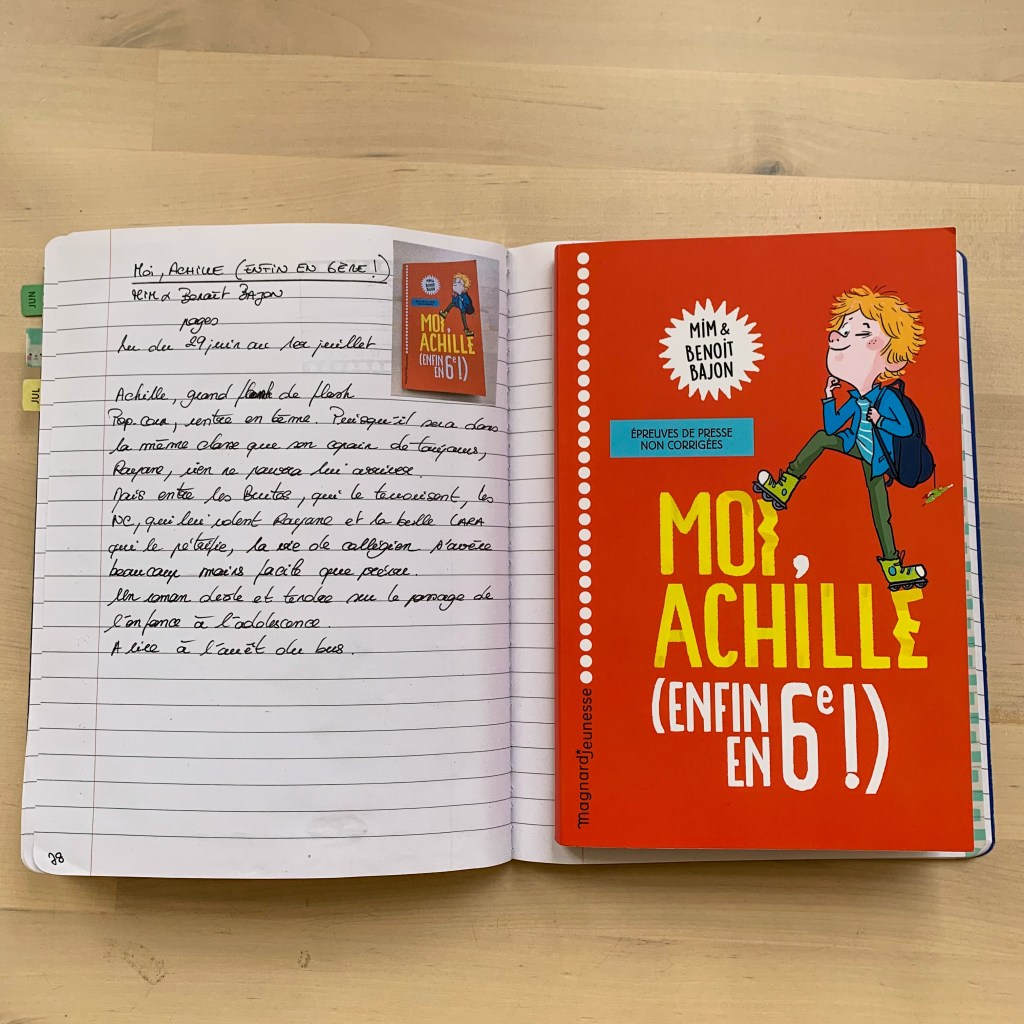 Moi, ACHILLE (ENFIN EN 6ÈRE !)
Mim & Benoît BAJON
pages
Lu du 29 juin au 1er juillet
Achille, grand de flash
Pop-corn, rentre en 6ème. Puisqu'il sera dans
la même classe que son copain de toujours,
Rayane, rien ne pourra lui arriver.
Mais entre les Brutos, qui le terrorisent, les
NC, qui lui volent Rayane et la belle LARA
qui le pétrifie, la vie de collégien s'avère
beaucoup moins facile que prévu.
Un roman drôle et tendre sur le passage de
l'enfance à l'adolescence.
A lire à l'arrêt du bus.
28
JUN
JUL
MIM &
BENOIT
BAJON
MOI,
ACHILLE
(ENFIN
EN 6e!)
MIM &
BENOIT
BAJON
ÉPREUVES DE PRESSE
NON CORRIGÉES
MOI,
ACHILLE
(ENFIN
EN 6e!)
magnard jeunesse